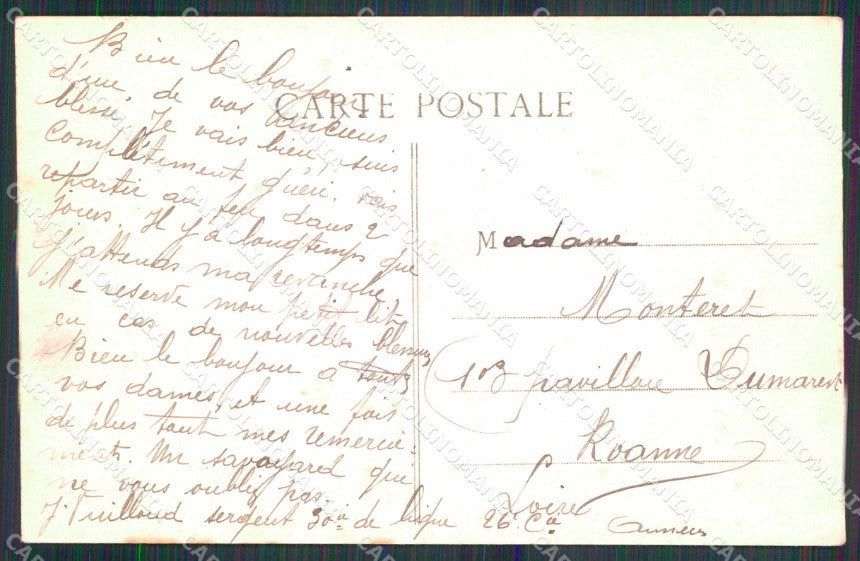 Bien le bonjour
d'une de vos anciens
blessé. Je vais bien, suis
complètement guéri. vais
repartir au feu dans 2
jours. Il y'a longtemps que
J'attends ma revenche
Me reserve mon petit lit
en cas de nouvelles
Bien le bonjour a
vos dames, et une fois
de plus tout mes remercie-
ments. Un savoyard que
ne vous oubli pas.
J. Vuilloud sergent 30e de ligne 26 Cie
CARTE POSTALE
Madame
Monteret
pavillon Dumarest
Roanne
Loire
CARTOLINOMANIA